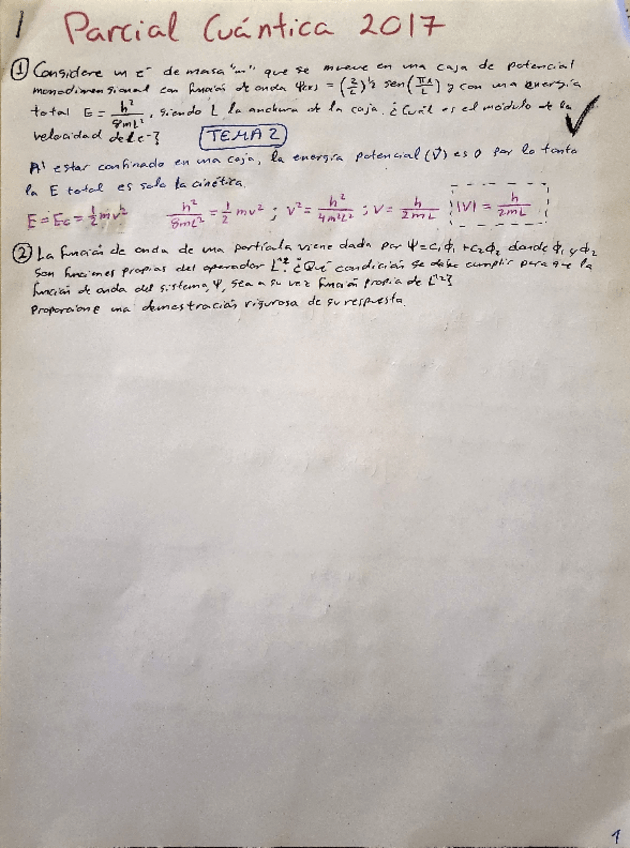 1 Parcial Cuántica 2017
① Considere un e⁻ de masa "m" que se mueve en una caja de potencial
monodimensional con función de onda Ψ(x) = (2/L)^½ sen(πx/L) y con una energía
total E = h²/8mL², siendo L la anchura de la caja. ¿Cuál es el módulo de la
velocidad del e⁻?
TEMA 2
Al estar confinado en una caja, la energía potencial (V) es 0 por lo tanto
la E total es solo la cinética.
E = Ec = ½mv² h²/8mL² = ½mv² ; v² = h²/4m²L² ; v = h/2mL |V| = h/2mL
② La función de onda de una partícula viene dada por Ψ=c₁ϕ₁+c₂ϕ₂ donde ϕ₁ y ϕ₂
son funciones propias del operador L̂². ¿Qué condición se debe cumplir para que la
función de onda del sistema, Ψ, sea a su vez función propia de L̂²?
Proporcione una demostración rigurosa de su respuesta.
1